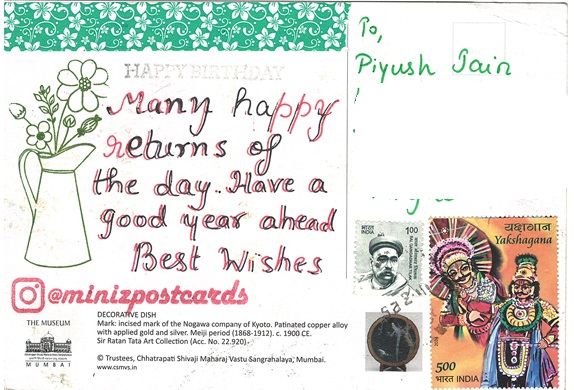 HAPPY BIRTHDAY
Many happy
returns of
the day.. Have a
good year ahead
Best Wishes
@minizpostcards
To,
Piyush Jain
THE MUSEUM
MUMBAI
DECORATIVE DISH
Mark: incised mark of the Nogawa company of Kyoto. Patinated copper alloy
with applied gold and silver. Meiji period (1868-1912). c. 1900 CE.
Sir Ratan Tata Art Collection (Acc. No. 22.920)
© Trustees, Chhatrapati Shivaji Maharaj Vastu Sangrahalaya, Mumbai.
www.csmvs.in
भारत
INDIA
1.00
BAL GANGADHAR TILAK
यक्षगान
Yakshagana
5.00
भारत
INDIA